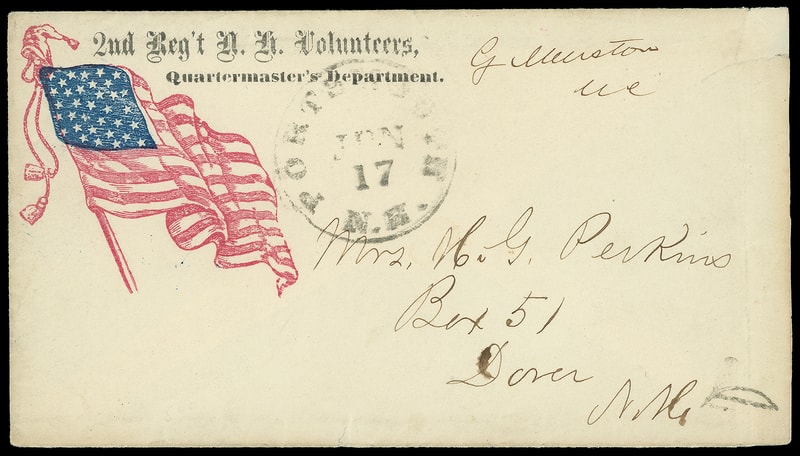 2nd Reg't N. H. Volunteers,
Quartermaster's Department.
G Marston
M C
PORTSMOUTH
JUN
17
N.H.
Mrs. H. G. Perkins
Box 51
Dover
N.H.